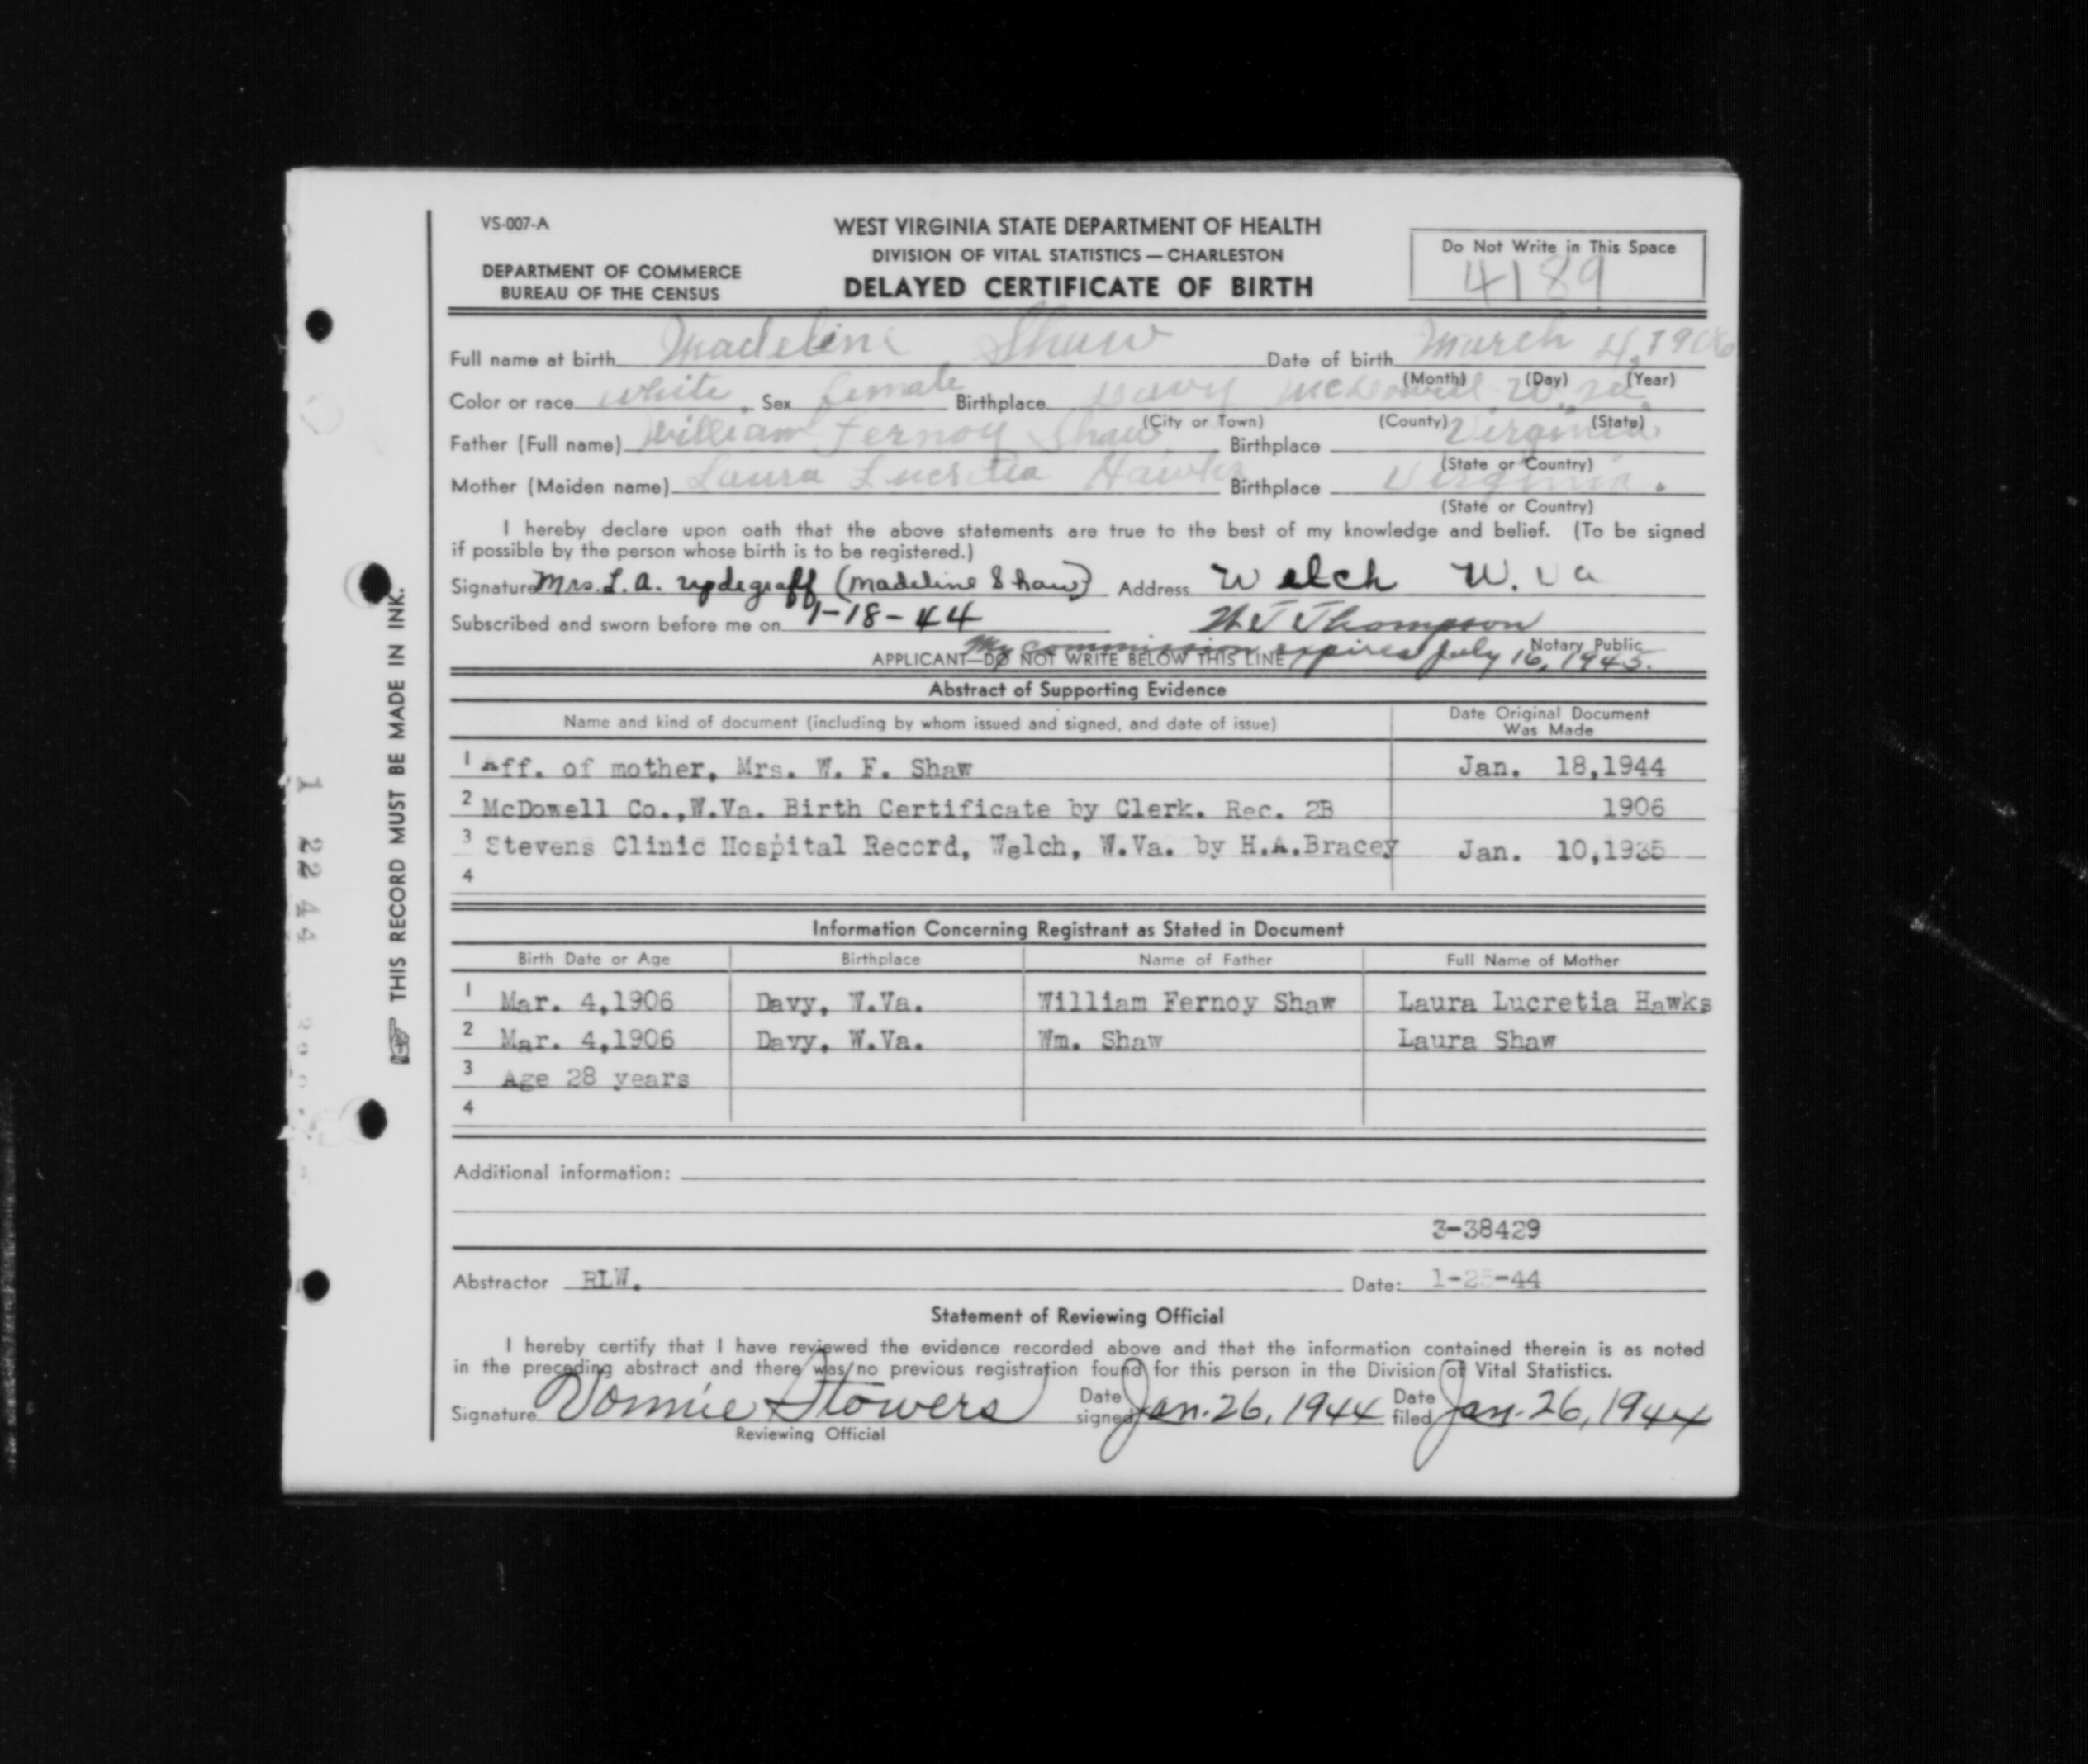 VS-007-A
WEST VIRGINIA STATE DEPARTMENT OF HEALTH
DIVISION OF VITAL STATISTICS — CHARLESTON
DEPARTMENT OF COMMERCE
BUREAU OF THE CENSUS
DELAYED CERTIFICATE OF BIRTH
Do Not Write in This Space
4189
Full name at birth Madeline Shaw Date of birth March 4, 1906
(Month) (Day) (Year)
Color or race white Sex female Birthplace Davy McDowell W. Va.
(City or Town) (County) (State)
Father (Full name) William Fernoy Shaw Birthplace Virginia
(State or Country)
Mother (Maiden name) Laura Lucretia Hawks Birthplace Virginia.
(State or Country)
I hereby declare upon oath that the above statements are true to the best of my knowledge and belief. (To be signed
if possible by the person whose birth is to be registered.)
Signature Mrs. L. A. updegraff (Madeline Shaw) Address Welch W. Va
Subscribed and sworn before me on 1-18-44 Thompson
Notary Public
My commission expires July 16, 1945.
APPLICANT—DO NOT WRITE BELOW THIS LINE
Abstract of Supporting Evidence
Name and kind of document (including by whom issued and signed, and date of issue) Date Original Document
Was Made
1 Aff. of mother, Mrs. W. F. Shaw Jan. 18,1944
2 McDowell Co.,W.Va. Birth Certificate by Clerk. Rec. 2B 1906
3 Stevens Clinic Hospital Record, Welch, W.Va. by H.A.Bracey Jan. 10,1935
4
Information Concerning Registrant as Stated in Document
Birth Date or Age Birthplace Name of Father Full Name of Mother
1 Mar. 4,1906 Davy, W.Va. William Fernoy Shaw Laura Lucretia Hawks
2 Mar. 4,1906 Davy, W.Va. Wm. Shaw Laura Shaw
3 Age 28 years
4
Additional information:
3-38429
Abstractor RLW. Date: 1-25-44
Statement of Reviewing Official
I hereby certify that I have reviewed the evidence recorded above and that the information contained therein is as noted
in the preceding abstract and there was no previous registration found for this person in the Division of Vital Statistics.
Signature Vonnie Stowers Date signed Jan. 26, 1944 Date filed Jan. 26, 1944
Reviewing Official
THIS RECORD MUST BE MADE IN INK.
1 22 44